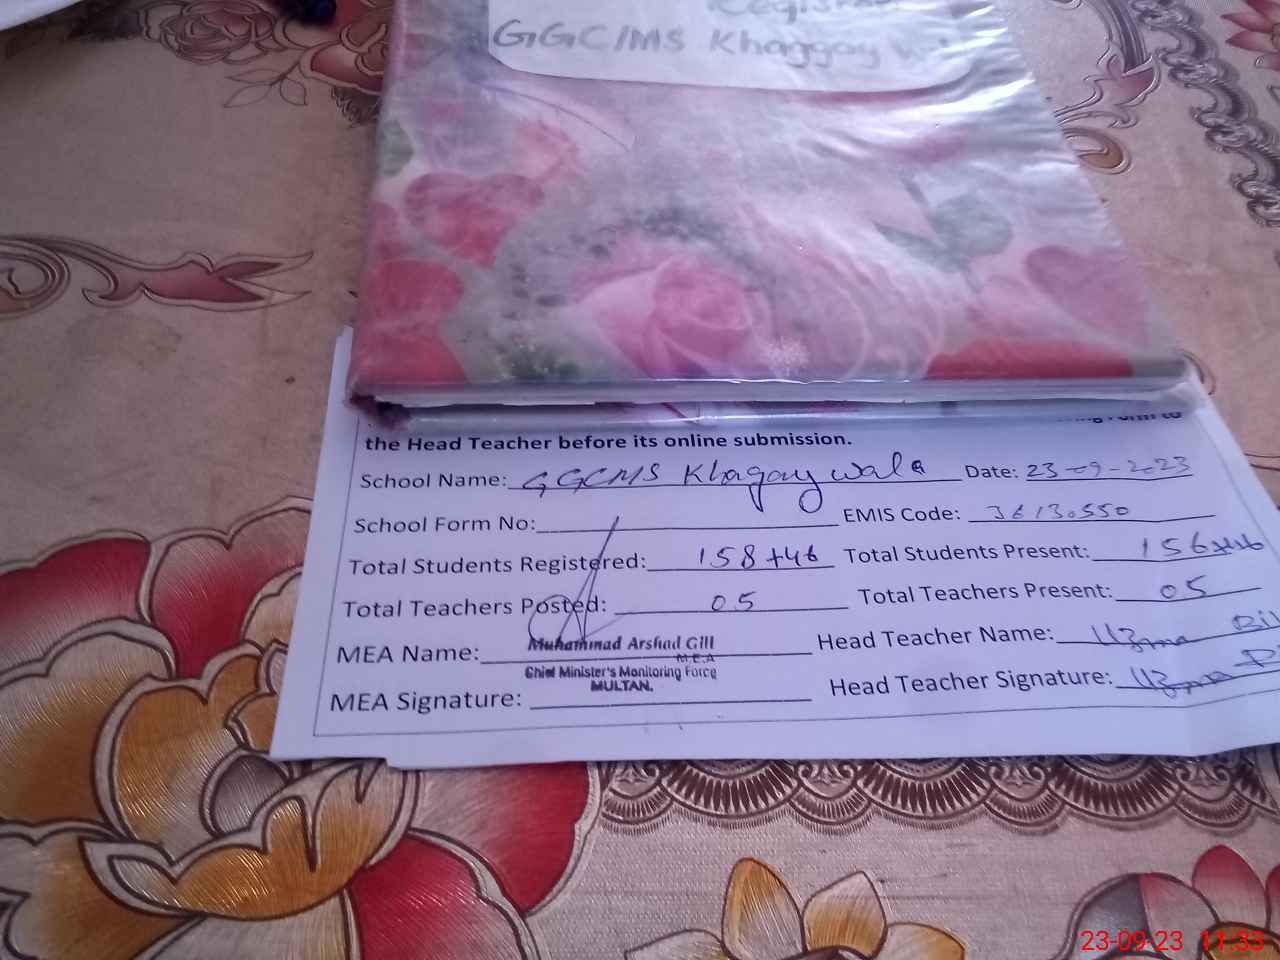 GGC/MS Khaggay
the Head Teacher before its online submission.
School Name: GGCMS Khagaywala Date: 23-09-2023
School Form No: EMIS Code: 36130550
Total Students Registered: 158+46 Total Students Present: 156+46
Total Teachers Posted: 05 Total Teachers Present: 05
MEA Name: Muhammad Arshad Gill Head Teacher Name: Uzma
M.E.A
Chief Minister's Monitoring Force
MULTAN.
MEA Signature: Head Teacher Signature: Uzma
23-09-23 11:33